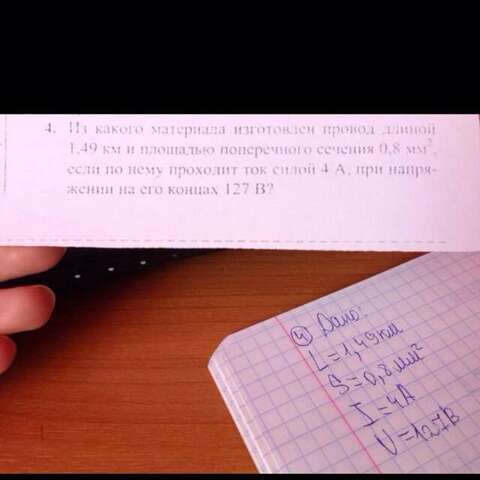 4. Из какого материала изготовлен провод длиной
1,49 км и площадью поперечного сечения 0,8 мм²,
если по нему проходит ток силой 4 А, при напря-
жении на его концах 127 В?
4) Дано:
L=1,49км
S=0,8мм²
I=4A
U=127В